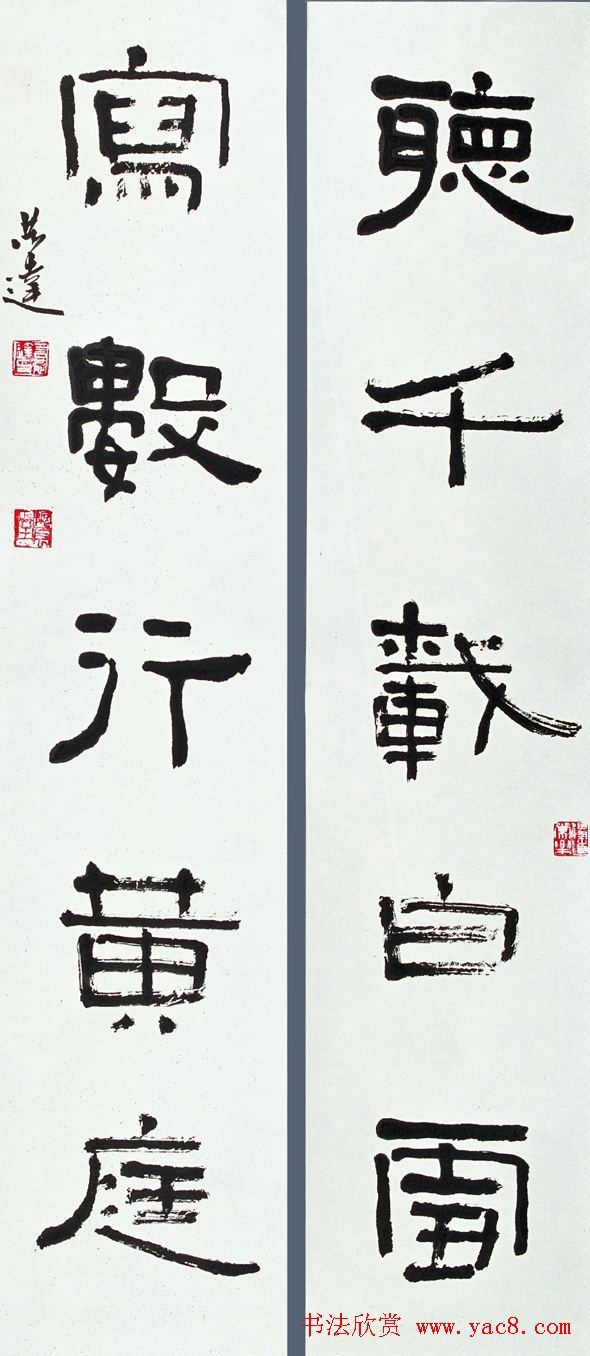 聽千載白雪
寫數行黃庭
书法欣赏 www.yac8.com